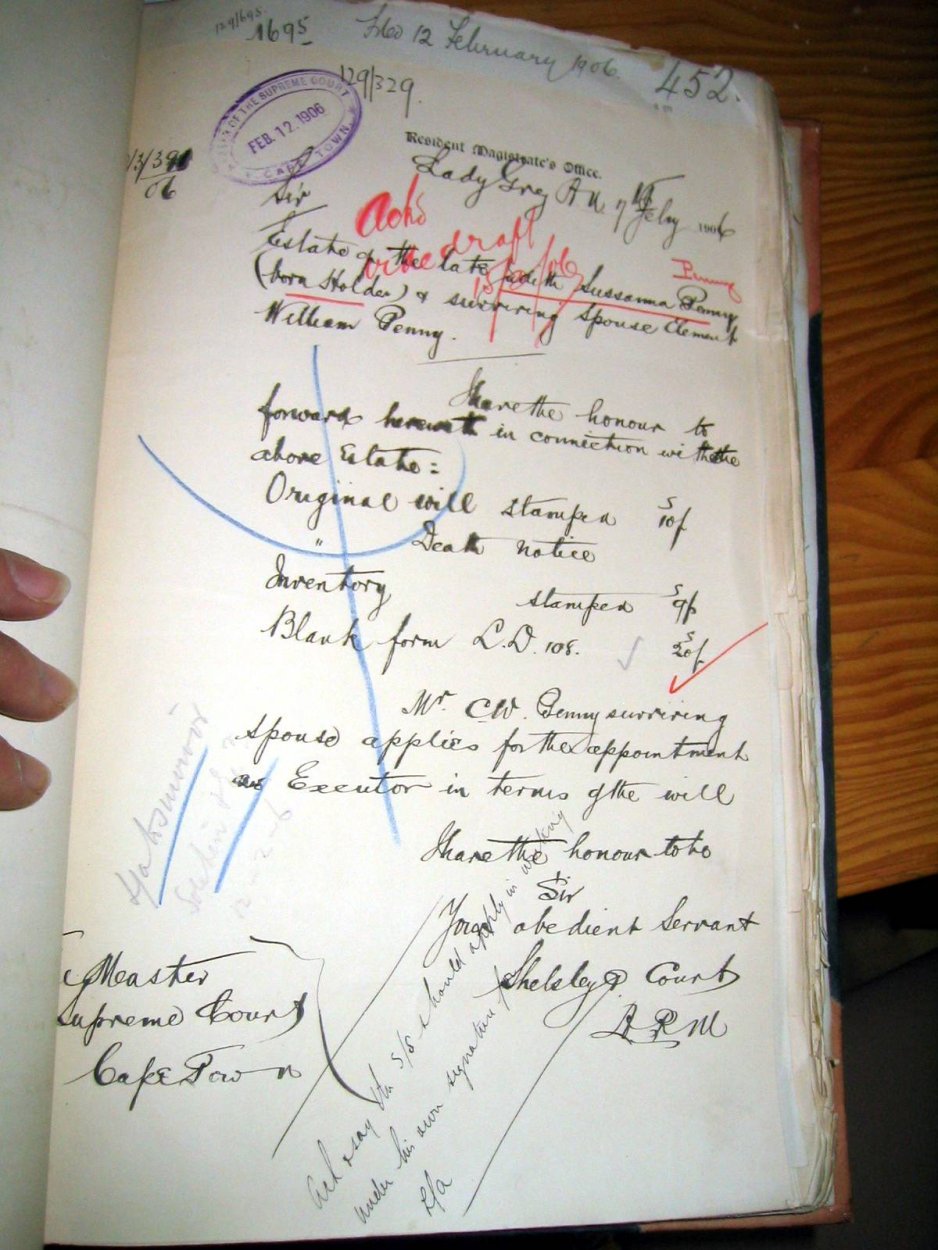 129/695
1695
Filed 12 February 1906.
452.
129/329.
OF THE SUPREME COURT
FEB. 12. 1906
CAPE TOWN
/3/39
06
Resident Magistrate's Office.
Lady Grey 7th Feby 1906
Sir
Ackd
vide draft
15/2/06
Penny
Estate of the late Judith Sussanna Penny
(born Holder) & surviving Spouse Clement
William Penny.
I have the honour to
forward herewith in connection with the
above Estate:
Original will stamped 10/
" Death notice
Inventory stamped 9/
Blank form L.D. 108. 20/
Mr C.W. Penny surviving
spouse applies for the appointment
as Executor in terms of the will
I have the honour to be
Sir
Your obedient Servant
Shelsley Court
A R M
Master
Supreme Court
Cape Town
Ack & say the s/s should apply in writing
under his own signature for
L/a